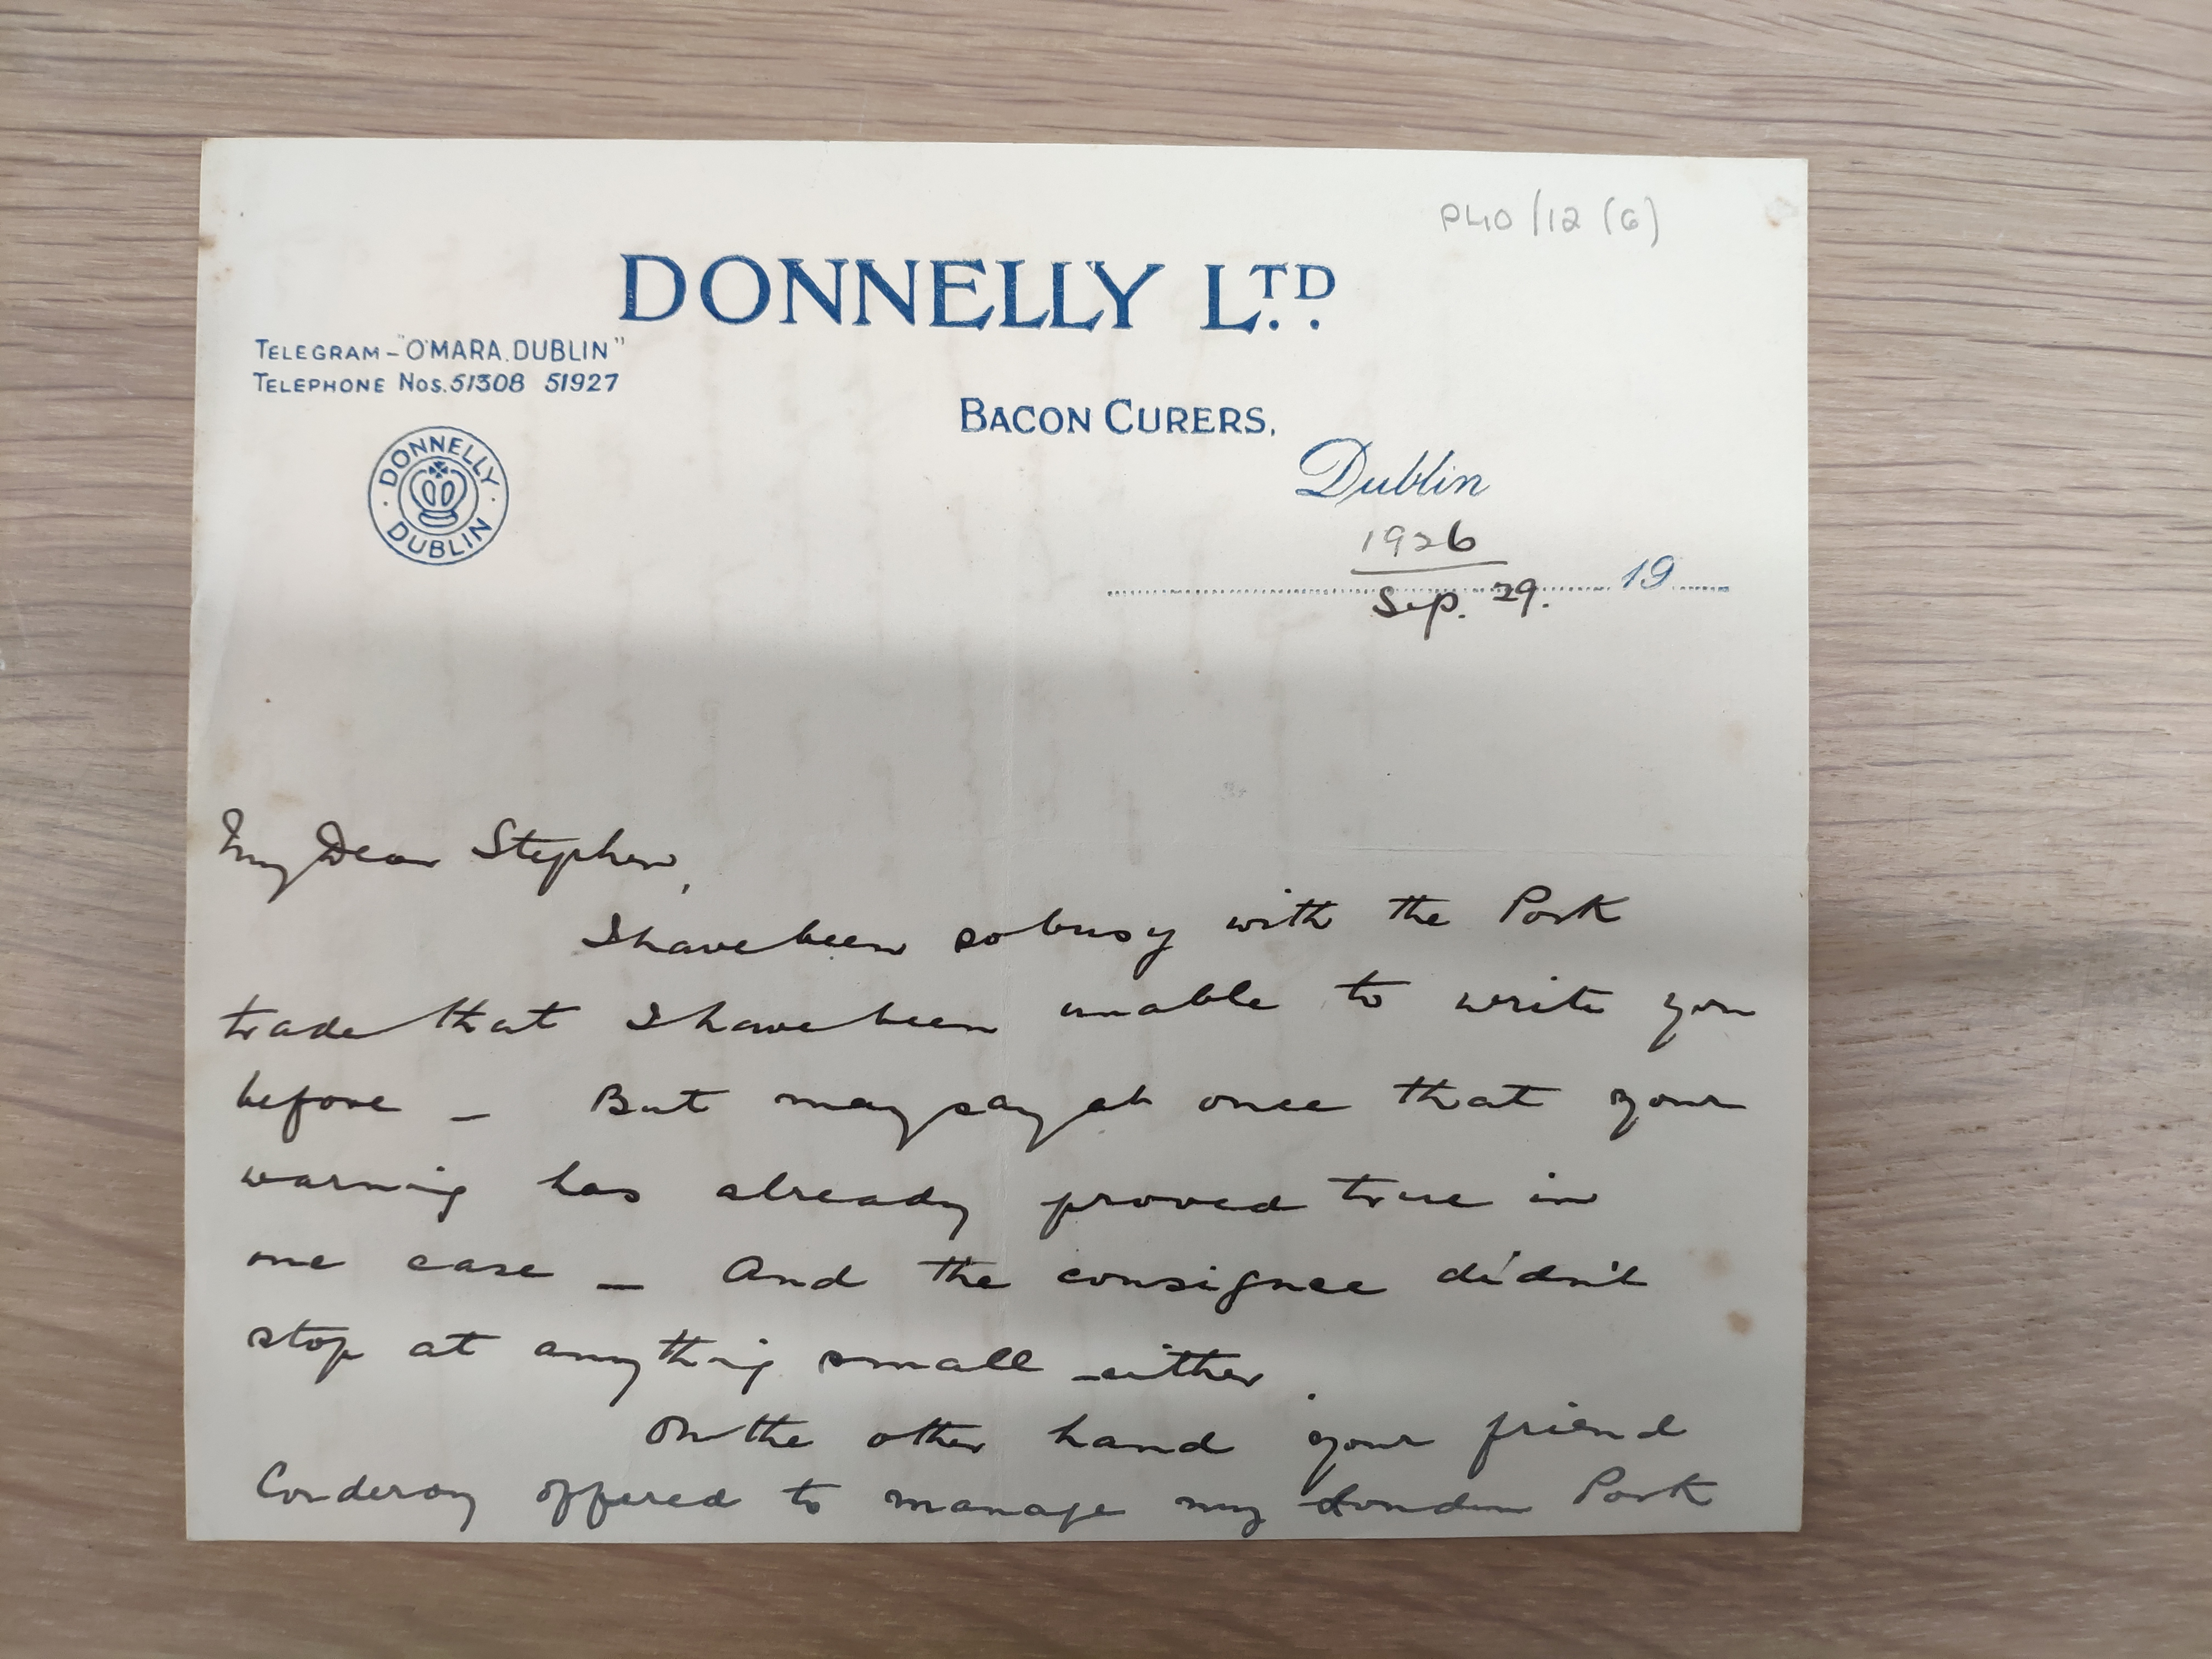 P40/12 (6)
DONNELLY LTD.
TELEGRAM - "O'MARA. DUBLIN"
TELEPHONE NOS. 51308 51927
BACON CURERS,
DONNELLY
DUBLIN
Dublin
1926
Sep. 29. 19
My Dear Stephen,
I have been so busy with the Pork
trade that I have been unable to write you
before - But may say at once that your
warning has already proved true in
one case - And the consignee didn't
stop at anything small either.
On the other hand your friend
Corderoy offered to manage my London Pork